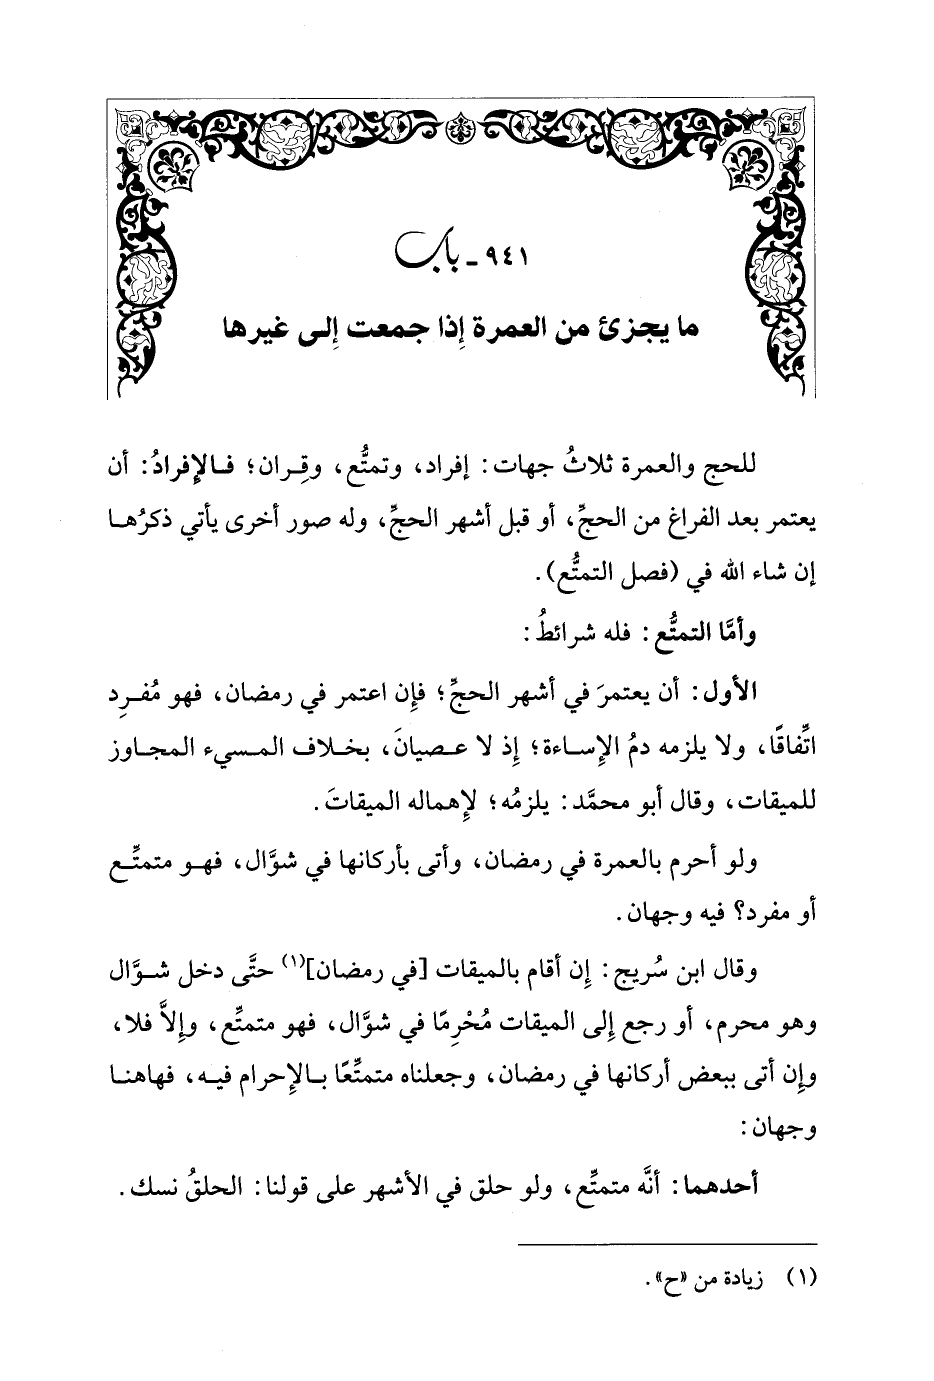 ٩٤١ - باب
ما يجزئ من العمرة إِذا جمعت إِلى غيرها
للحج والعمرة ثلاثُ جهات: إفراد، وتمتُّع، وقِران؛ فالإفرادُ: أن
يعتمر بعد الفراغ من الحجِّ، أو قبل أشهر الحجِّ، وله صور أخرى يأتي ذكرُها
إن شاء الله في (فصل التمتُّع).
وأمَّا التمتُّع: فله شرائطُ:
الأول: أن يعتمرَ في أشهر الحجِّ؛ فإن اعتمر في رمضان، فهو مُفرِد
اتِّفاقًا، ولا يلزمه دمُ الإساءة؛ إذ لا عصيانَ، بخلاف المسيء المجاوز
للميقات، وقال أبو محمَّد: يلزمُه؛ لإهماله الميقاتَ.
ولو أحرم بالعمرة في رمضان، وأتى بأركانها في شوَّال، فهو متمتِّع
أو مفرد؟ فيه وجهان.
وقال ابن سُريج: إن أقام بالميقات [في رمضان](١) حتَّى دخل شوَّال
وهو محرم، أو رجع إلى الميقات مُحْرِمًا في شوَّال، فهو متمتِّع، وإلاَّ فلا،
وإن أتى ببعض أركانها في رمضان، وجعلناه متمتِّعًا بالإحرام فيه، فهاهنا
وجهان:
أحدهما: أنَّه متمتِّع، ولو حلق في الأشهر على قولنا: الحلقُ نسك.
(١) زيادة من «ح».